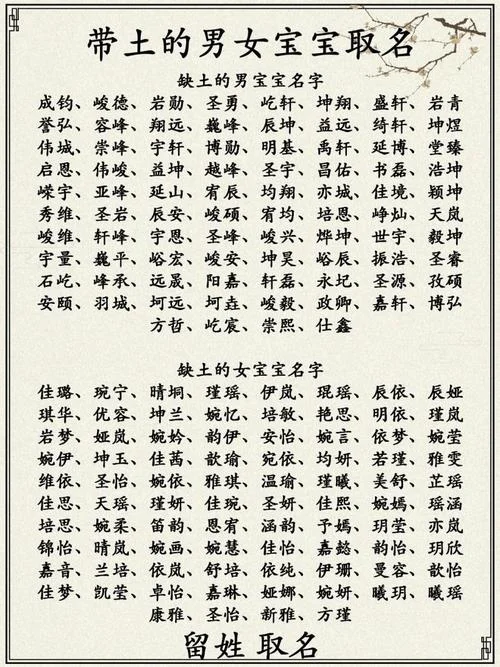 带土的男女宝宝取名
缺土的男宝宝名字
成钧、峻德、岩勋、圣勇、屹轩、坤翔、盛轩、岩青
誉弘、容峰、翔远、巍峰、辰坤、益远、绮轩、坤煜
伟城、崇峰、宇轩、博勋、明基、禹轩、延博、堂臻
启恩、伟峻、益坤、越峰、圣宇、昌佑、书磊、浩坤
嵘宇、亚峰、延山、宥辰、均翔、亦城、佳境、颖坤
秀维、圣岩、辰安、峻硕、宥均、培恩、峥灿、天岚
峻维、轩峰、宇恩、圣峰、峻兴、烨坤、世宇、毅坤
宇量、巍平、峪宏、峻安、坤昊、峪辰、振浩、圣睿
石屹、峰承、远晟、阳嘉、轩磊、永圮、圣源、孜硕
安颐、羽城、坷远、坷垚、峻毅、政卿、嘉轩、博弘
方哲、屹宸、崇熙、仕鑫
缺土的女宝宝名字
佳璐、琬宁、晴垌、瑾瑶、伊岚、琨瑶、辰依、辰娅
琪华、优容、坤兰、婉忆、培敏、艳思、明依、瑾岚
岩梦、娅岚、婉妗、韵伊、安怡、婉言、依梦、婉莹
婉伊、坤玉、佳茜、歆瑜、宛依、均妍、若瑾、雅雯
维依、圣怡、婉依、雅琪、温瑜、瑾曦、美舒、芷瑶
佳思、天瑶、瑾妍、佳琬、圣妍、佳熙、婉嫣、瑶涵
培思、婉柔、笛韵、恩宥、涵韵、予嫣、玥莹、亦岚
锦怡、晴岚、婉画、婉慧、佳怡、嘉懿、韵怡、玥欣
嘉音、兰培、依岚、舒培、依纯、伊珊、曼容、歆怡
佳梦、凯莹、卓怡、嘉琳、娅娜、婉妍、曦玥、曦瑶
康雅、圣怡、新雅、方瑾
留姓 取名